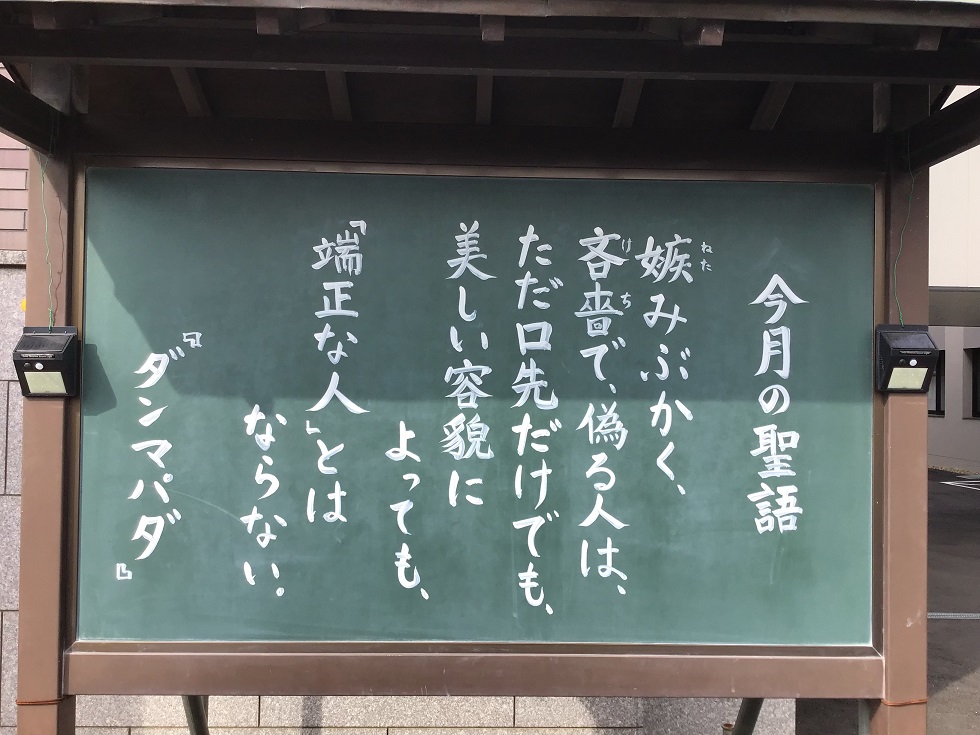 今月の聖語
嫉みぶかく、
ねた
吝嗇で、偽る人は、
けち
ただ口先だけでも、
美しい容貌に
よっても、
「端正な人」とは
ならない。
『ダンマパダ』